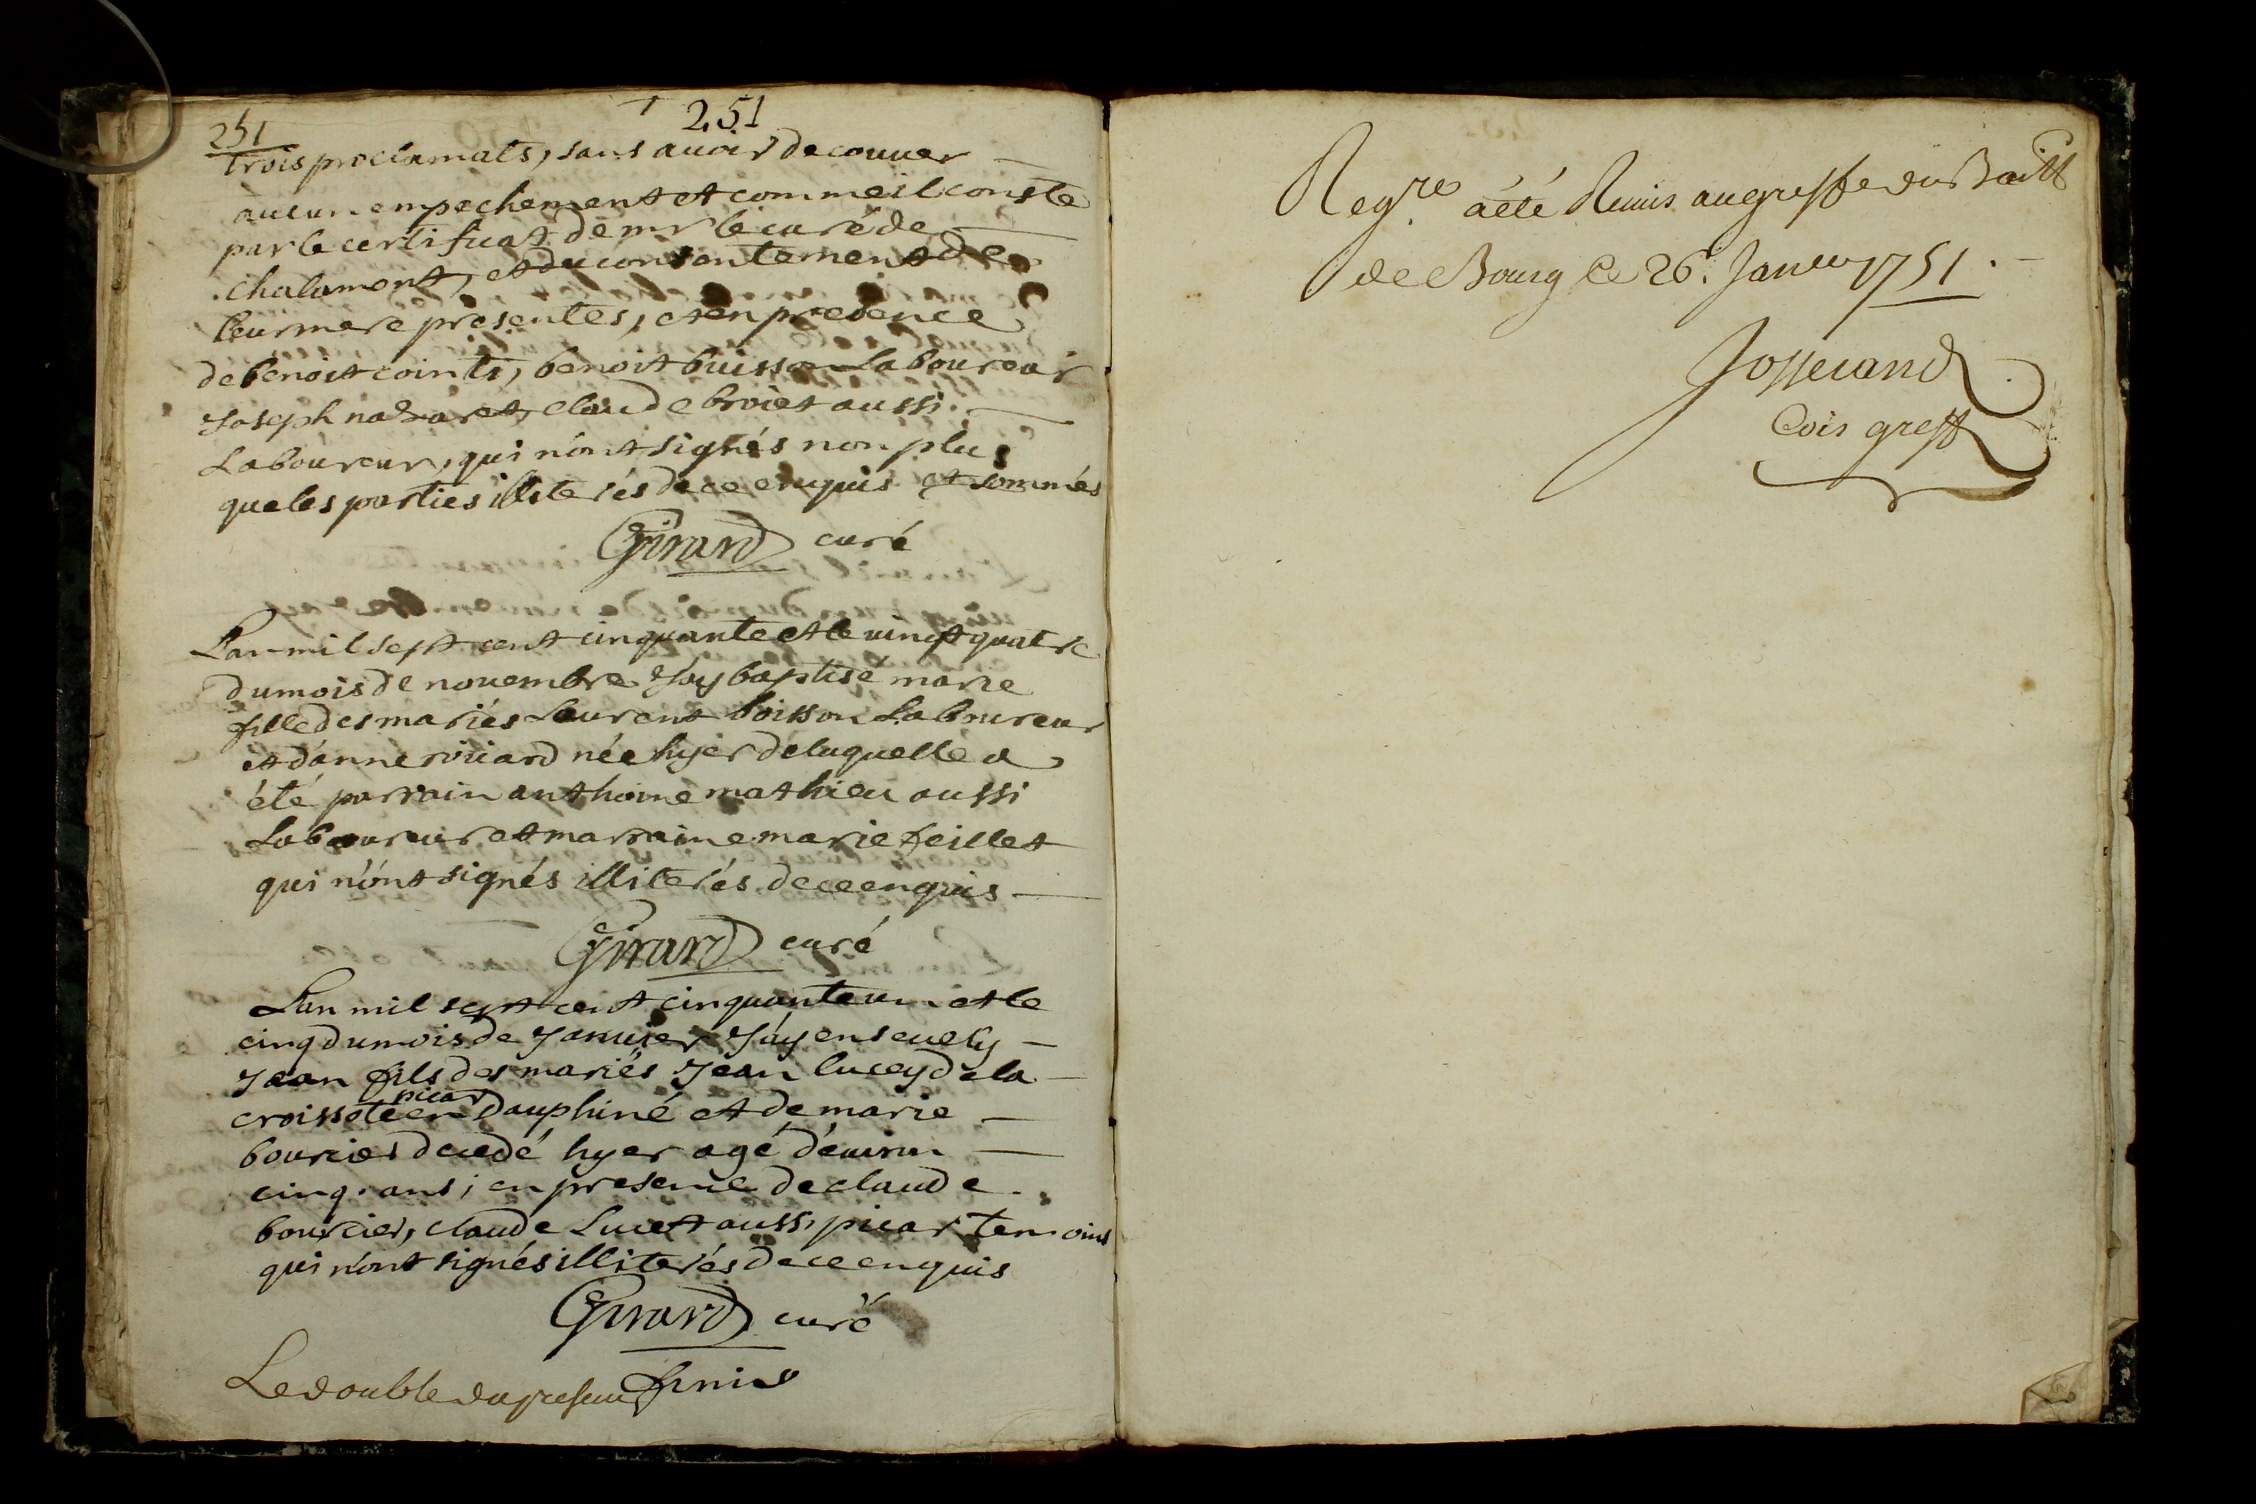 251
251
trois proclamats, sans avoir decouver
aucun empechement et comme il conste
par le certificat de mr le curé de
chalamont, et du consentement de
leur mere presentes, et en presence
de benoit cointi, benoit buisson Laboureur
Joseph nabaret, claude broiet aussi
Laboureur, qui n'ont signés non plus
que les parties illiterés de ce enquis et sommés
Girard curé
L'an mil sept cent cinquante et le vingt quatre
du mois de novembre J'ay baptisé marie
fille des mariés Laurent boisson Laboureur
et d'anne riviard née hyer de laquelle a
été parrain anthoine mathieu aussi
Laboureur et marraine marie feillet
qui n'ont signés illiterés de ce enquis
Girard curé
L'an mil sept cent cinquante un et le
cinq du mois de Janvier J'ay ensevely
Jean fils des mariés Jean lucey de la
picar
croissote en Dauphiné et de marie
bourcier decedé hyer agé d'environ
cinq ans; en presence de claude
bourcier, claude Lucet aussi picar temoins
qui n'ont signés illiterés de ce enquis
Girard curé
finis
Le double du present
Regre a été Remis au greffe du Baill
de Bourg le 26. Janver 1751.
Josserand
Cois greff